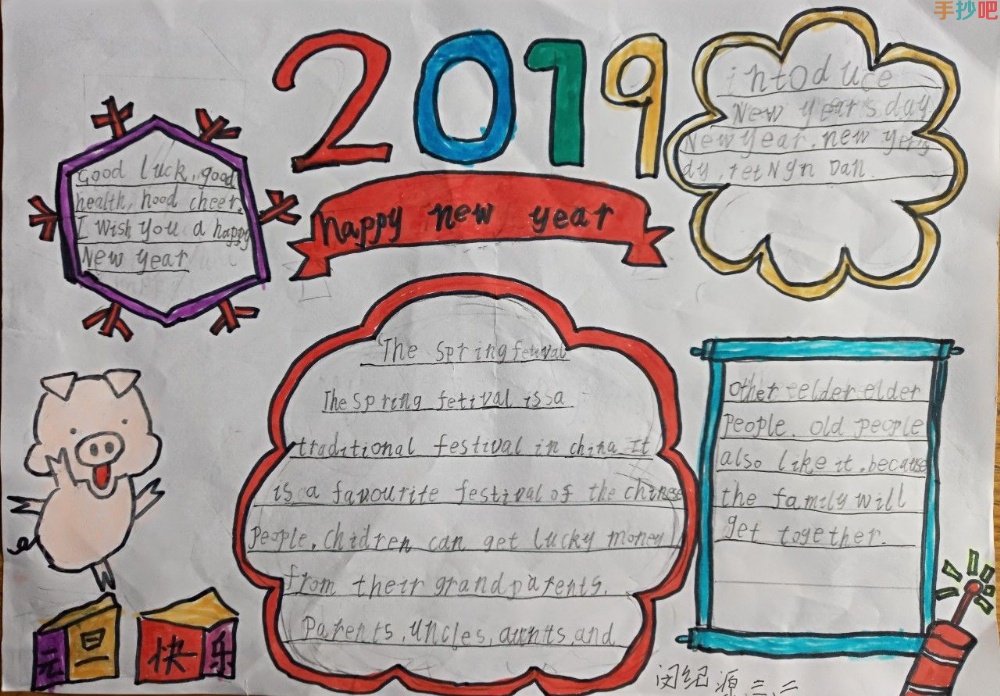 手抄吧
2019
happy new year
Good luck, good
health, hood cheer.
I wish you a happy
New year
intoduce
New year's day
New year. new
dy, Yet Nyn Dan.
The Spring fetival
The Spring fetival is a
traditional festival in china. It
is a favourite festival of the chinese
People. Children can get lucky money
from their grandparents.
Parents, uncles, aunts, and
other eelder elder
People. old people
also like it. because
the family will
get together.
元旦快乐
闵纪源 三